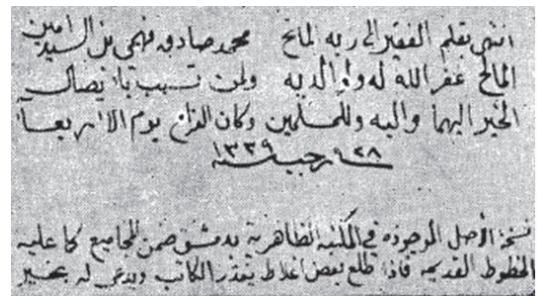 انتهى بقلم الفقير الى ربه المانح محمد صادق فهمي بن السيد امين
المالح غفر الله له ولوالديه ولمن تسبب بايصال
الخير اليهما واليه وللمسلمين وكان الفراغ يوم الاربعاء
٢٨ رجب سنة ١٣٣٩
نسخة الأصل الموجوده في المكتبه الظاهرية بدمشق ضمن المجاميع كما عليه
الخطوط القديمه فاذا طلع بعض اغلاط يتعذر الكاتب ويدعى له بخير